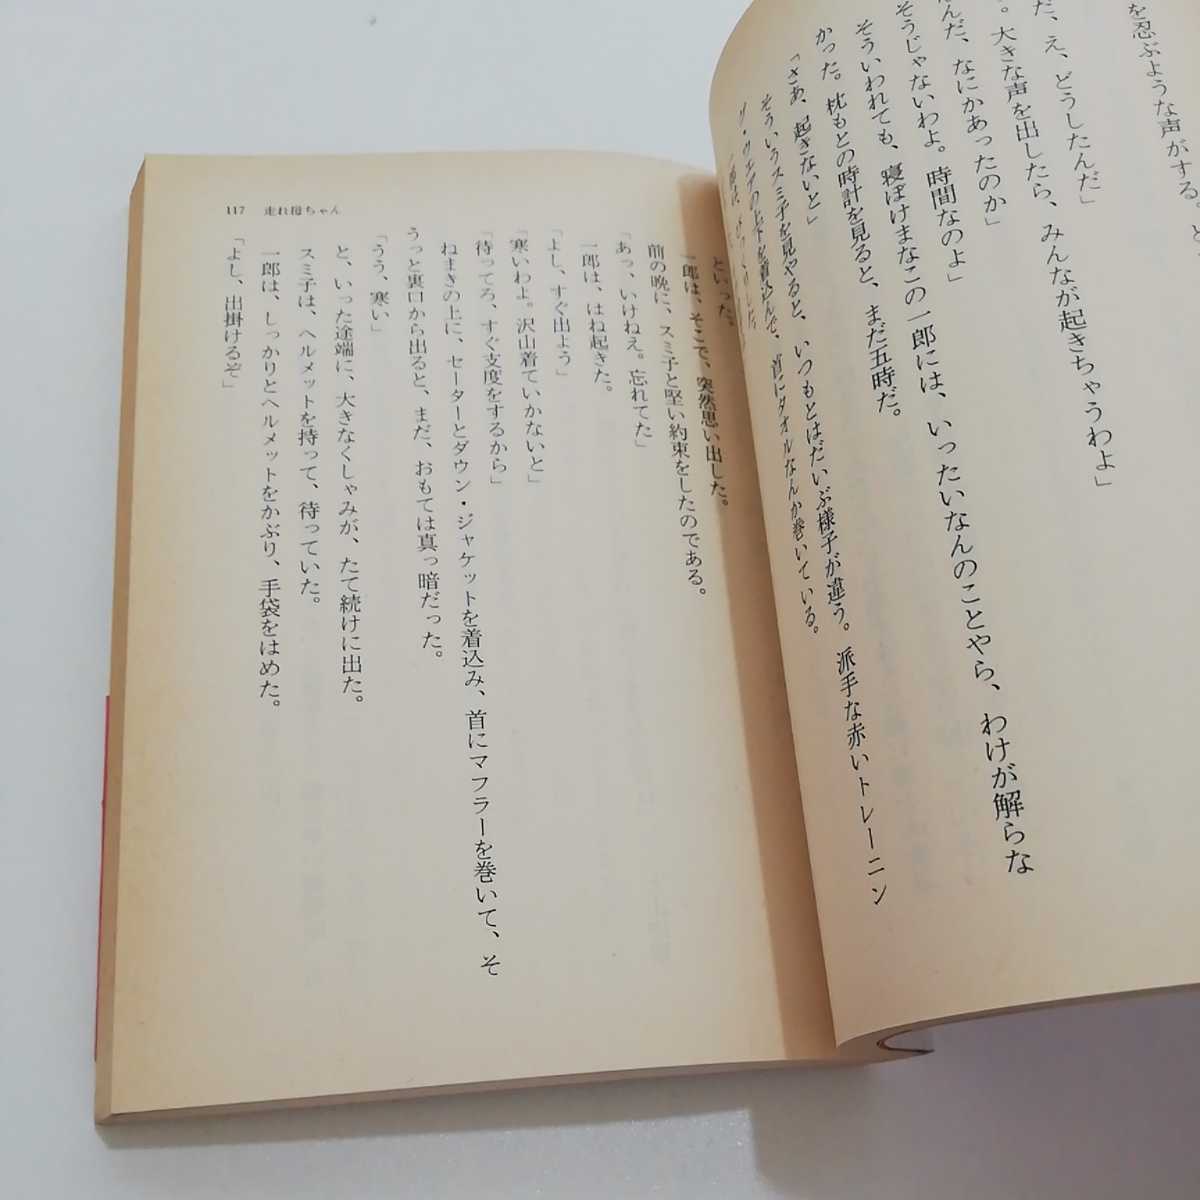 を忍ぶような声がする。
だ、え、どうしたんだ」
。大きな声を出したら、みんなが起きちゃうわよ」
んだ、なにかあったのか」
そうじゃないわよ。時間なのよ」
そういわれても、寝ぼけまなこの一郎には、いったいなんのことやら、わけが解らな
かった。枕もとの時計を見ると、まだ五時だ。
「さあ、起きないと」
そういうスミ子を見やると、いつもとはだいぶ様子が違う。派手な赤いトレーニン
グ・ウエアの上下を着込んで、首にタオルなんか巻いている。
117 走れ母ちゃん
といった。
一郎は、そこで、突然思い出した。
前の晩に、スミ子と堅い約束をしたのである。
「あっ、いけねえ。忘れてた」
一郎は、はね起きた。
「よし、すぐ出よう」
「寒いわよ。沢山着ていかないと」
「待ってろ、すぐ支度をするから」
ねまきの上に、セーターとダウン・ジャケットを着込み、首にマフラーを巻いて、そ
うっと裏口から出ると、まだ、おもては真っ暗だった。
「うう、寒い」
と、いった途端に、大きなくしゃみが、たて続けに出た。
スミ子は、ヘルメットを持って、待っていた。
一郎は、しっかりとヘルメットをかぶり、手袋をはめた。
「よし、出掛けるぞ」